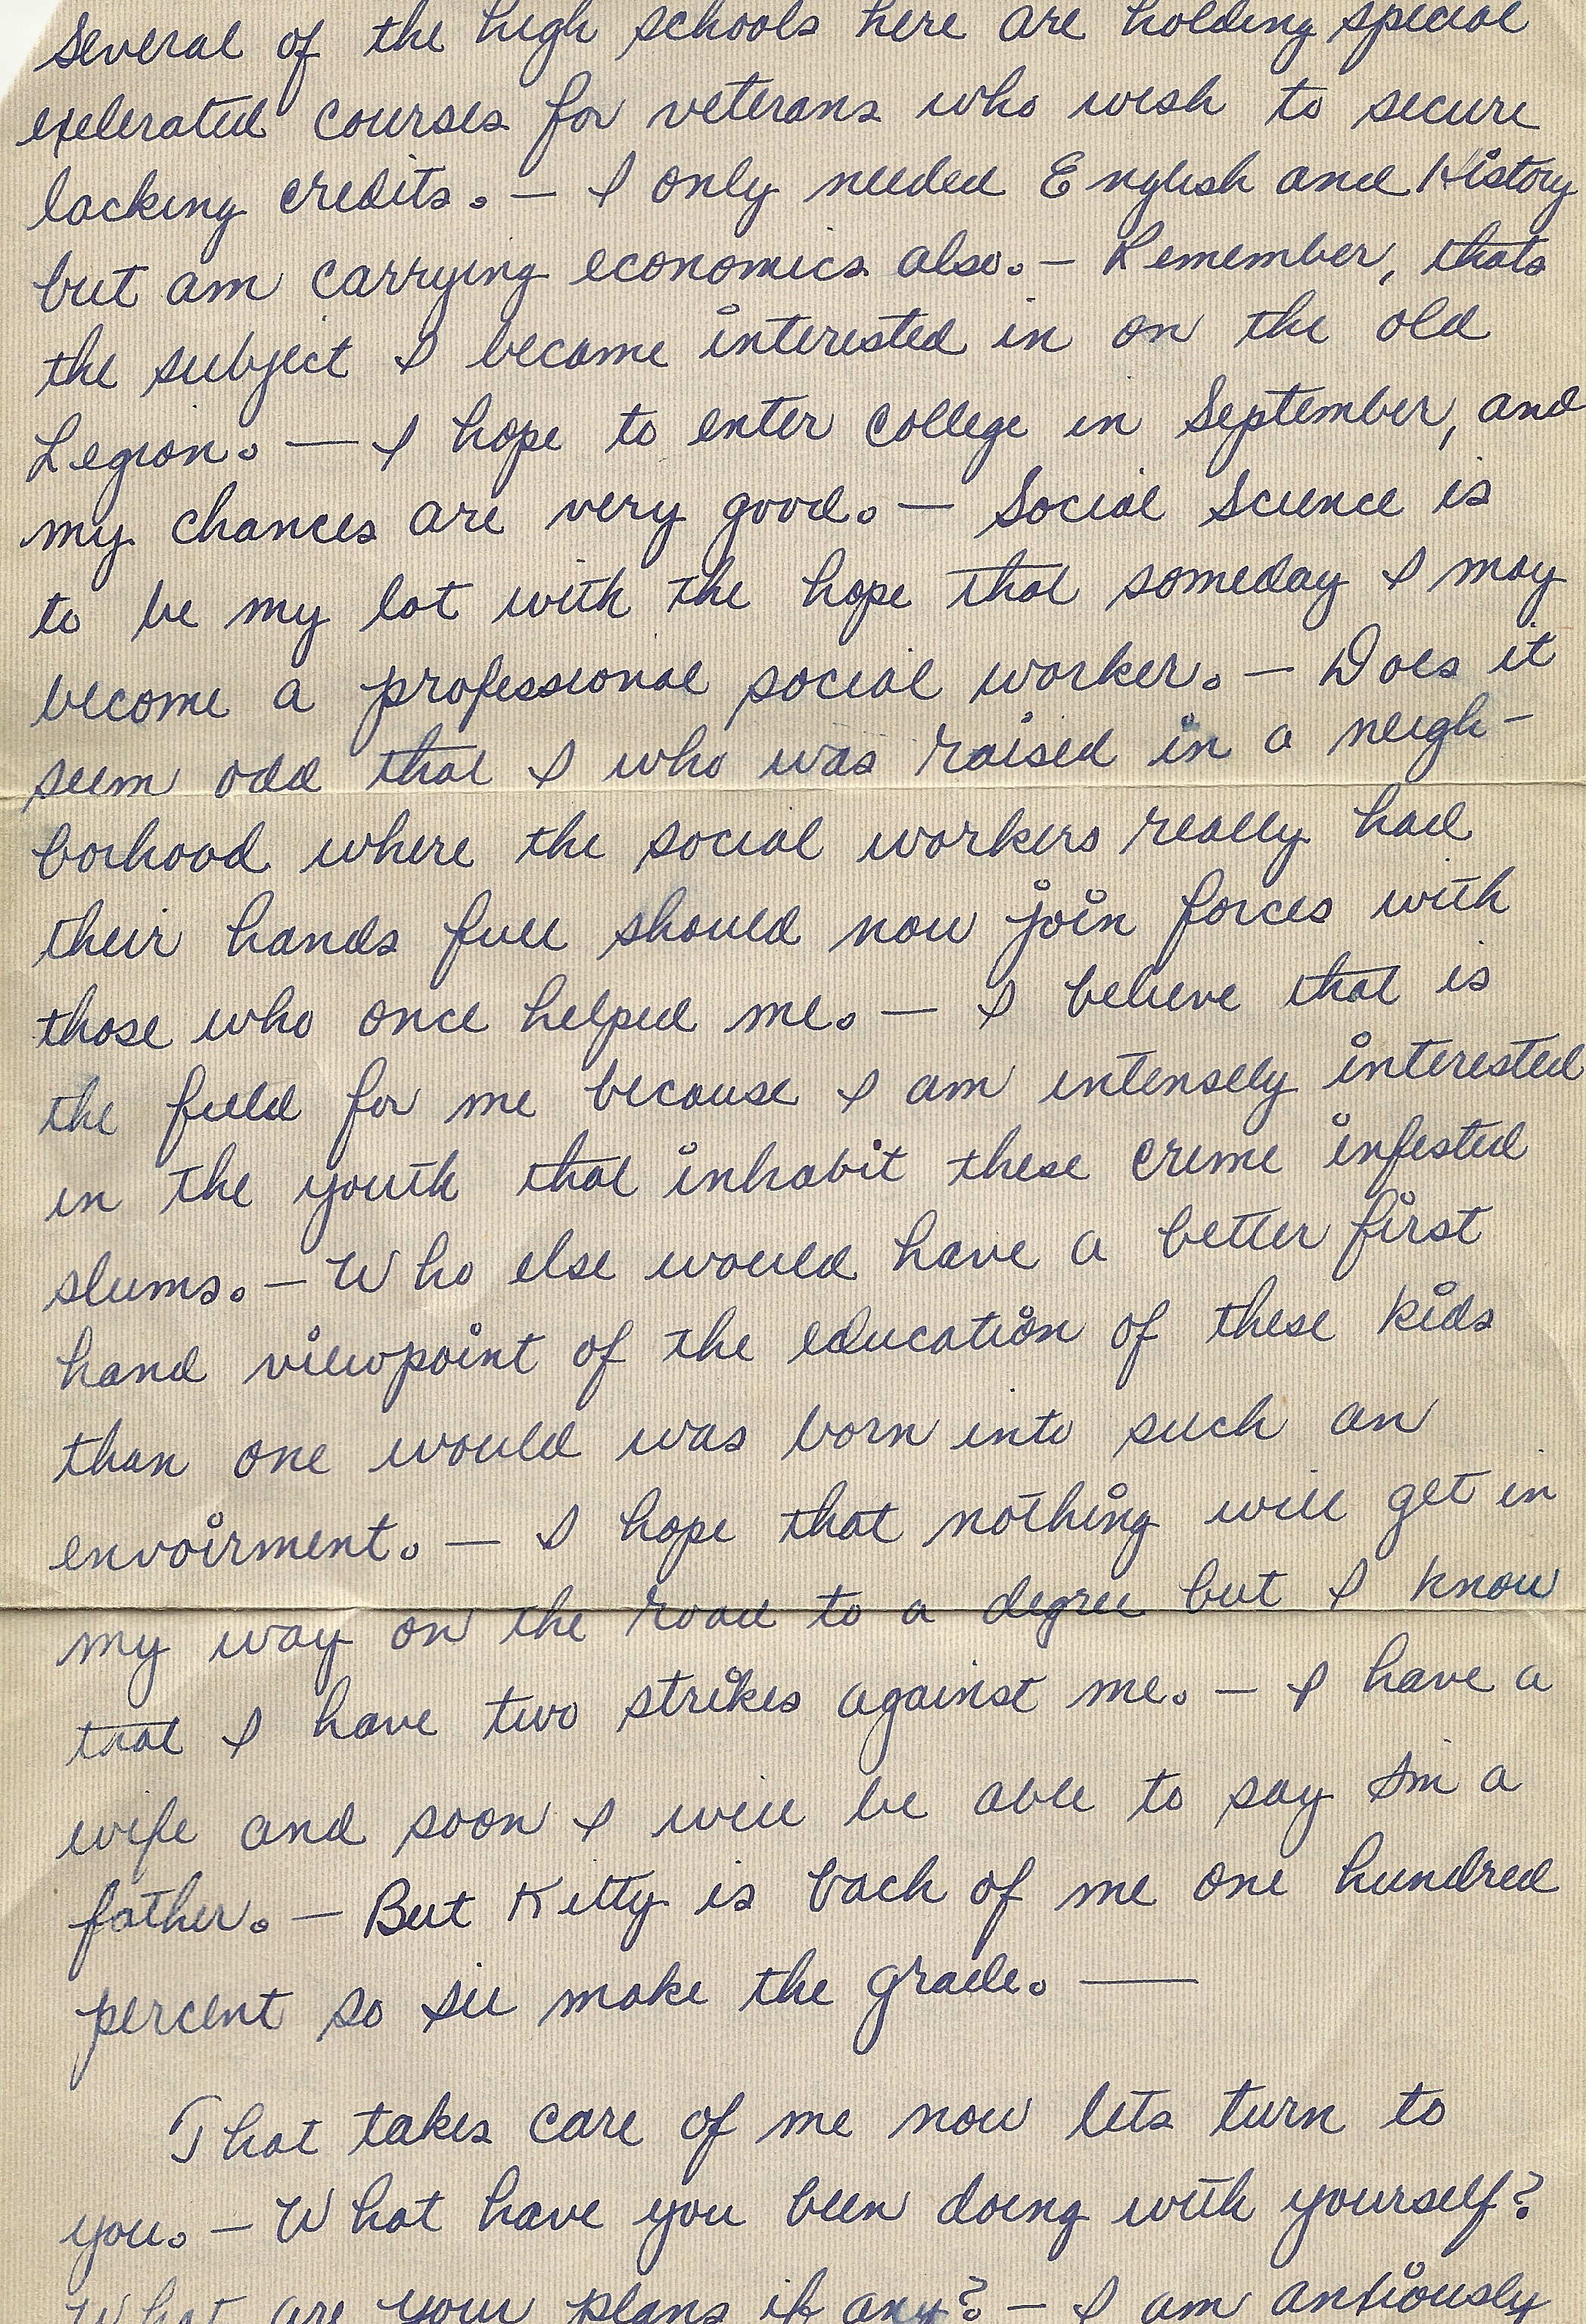 several of the high schools here are holding special
exelerated courses for veterans who wish to secure
lacking credits. — I only needed English and History
but am carrying economics also. — Remember, thats
the subject I became interested in on the old
Legion. — I hope to enter college in September, and
my chances are very good. — Social Science is
to be my lot with the hope that someday I may
become a professional social worker. — Does it
seem odd that I who was raised in a neigh-
borhood where the social workers really had
their hands full should now join forces with
those who once helped me. — I believe that is
the field for me because I am intensely interested
in the youth that inhabit these crime infested
slums. — Who else would have a better first
hand viewpoint of the education of these kids
than one would was born into such an
envoirment. — I hope that nothing will get in
my way on the road to a degree but I know
that I have two strikes against me. — I have a
wife and soon I will be able to say I'm a
father. — But Kitty is back of me one hundred
percent so I'll make the grade. —
That takes care of me now lets turn to
you. — What have you been doing with yourself?
What are your plans if any? — I am antiously